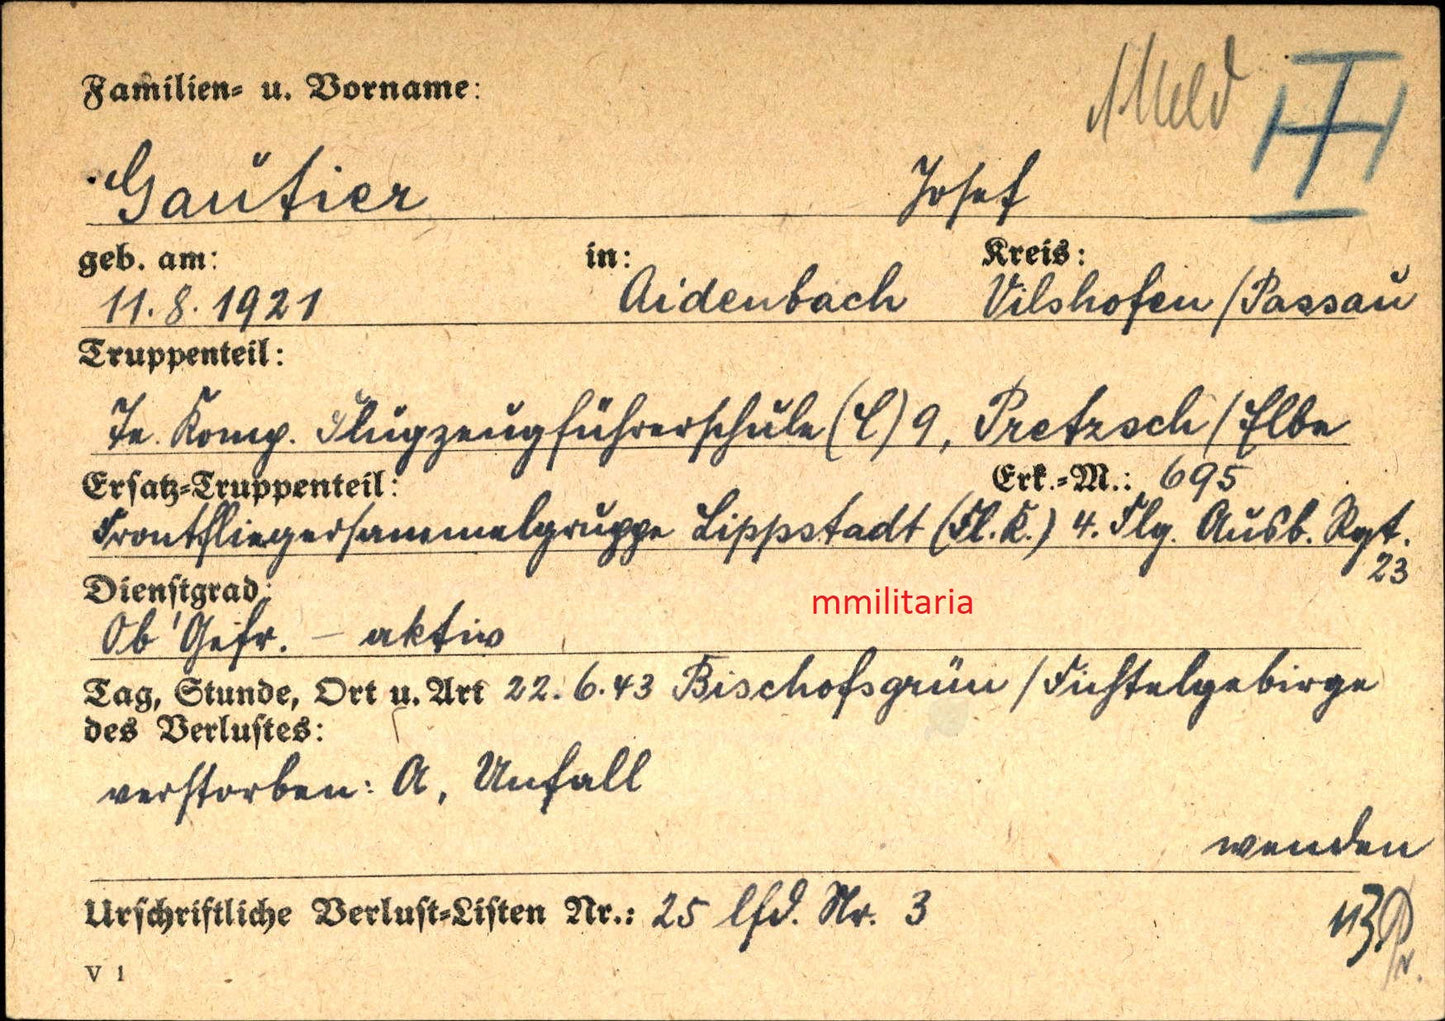 Familien- u. Vorname:
1 Meld
Gautier Josef
geb. am: in: Kreis:
11.8.1921 Aidenbach Vilshofen/Passau
Truppenteil:
Komp. Flugzeugführerschule (C) 9, Pretzsch/Elbe
Ersatz-Truppenteil: Erk.-M.: 695
Frontfliegersammelgruppe Lippstadt (Fl.K.) 4. Flg. Ausb. Rgt.
23
mmilitaria
Dienstgrad:
Ob'Gefr. - aktiv
Tag, Stunde, Ort u. Art 22.6.43 Bischofsgrün/Fichtelgebirge
des Verlustes:
verstorben: A, Unfall
wenden
Urschriftliche Verlust-Listen Nr.: 25 lfd. Nr. 3
V 1